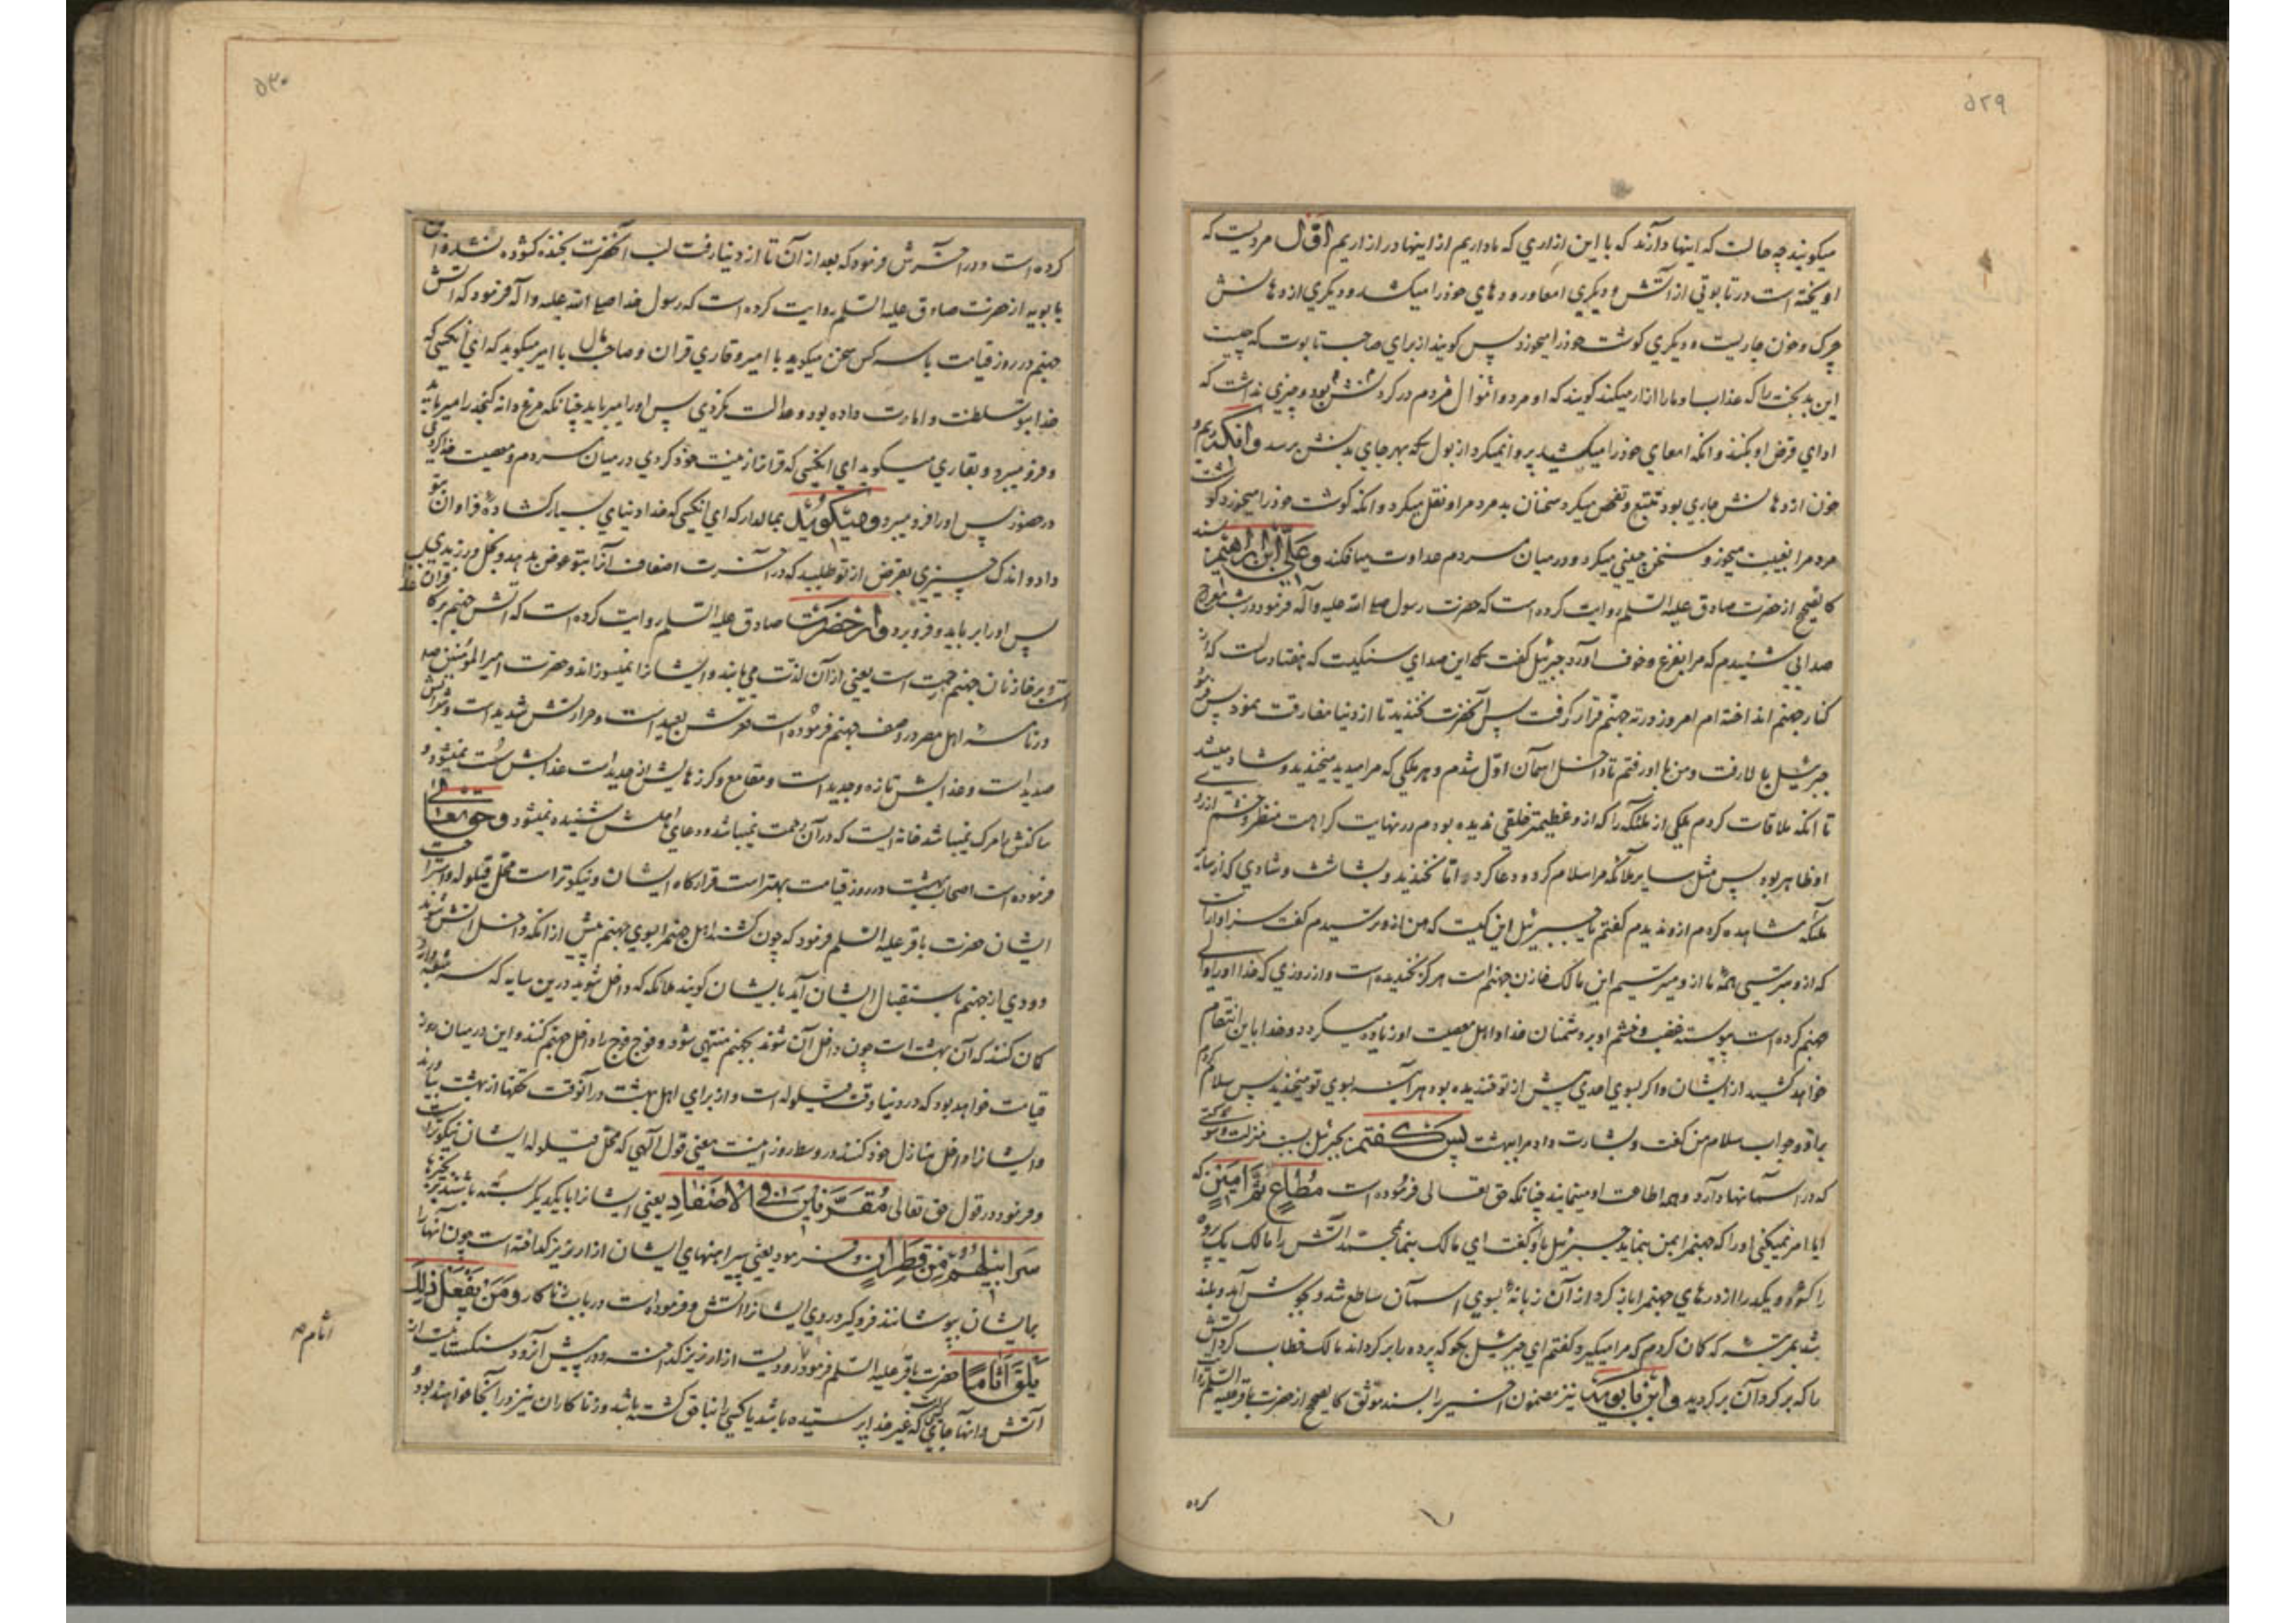 ۵۲۹
میکویند چه حالست که اینها دارند که با این ازاري که ما داریم از اینها در ازاریم اوّل مردیست که
اویخته است در تابوتي از آتش و دیکري امعا و رودهاي خود را میکشد و دیکري از دهانش
چرک و خون جاریست و دیکري کوشت خود را میخورد پس کویند از براي صاحب تابوت که چیست
این بدبخت را که عذاب او ما را ازار میکند کویند که او مرد و اموال مردم در کردنش بود و چیزي نداشت که
اداي قرض او بکنند و انکه امعاي خود را میکشید پروا نمیکرد از بول که بهر جاي بدنش برسد و انکه ریم و
خون از دهانش جاري بود تتبّع و تفحص میکرد سخنان بد مردم را و نقل میکرد و انکه کوشت خود را میخورد کوشت
مردم را بغیبت میخورد و سخن چیني میکرد و در میان مردم عداوت میافکند و علي ابن ابراهیم بسند
کالصحیح از حضرت صادق علیه السلم روایت کرده است که حضرت رسول صلی الله علیه و آله فرمود در شب معراج
صدایي شنیدم که مرا بفزع و خوف آورد جبرئیل کفت که این صداي سنکیست که هفتاد سالست که از
کنار جهنم انداخته ام امروز در ته جهنّم قرار کرفت پس آنحضرت نخندید تا از دنیا مفارقت نمود پس فرمود
جبرئیل بالا رفت و من با او رفتم تا داخل اسمان اوّل شدم و هر ملکي که مرا میدید میخندید و شاد میشد
تا انکه ملاقات کردم ملکي از ملئکه را که از و عظیمتر خلقي ندیده بودم در نهایت کراهت منظر و خشم از رو
او ظاهر بود پس مثل سایر ملائکه مرا سلام کرد و دعا کرد اما نخندید و بشاشت و شادي که از سایر
ملئکه مشاهده کردم از و ندیدم کفتم یا جبرئیل این کیست که من از و ترسیدم کفت سزاوارست
که از و بترسي همهٔ ما از و میترسیم این مالک خازن جهنم است هرکز نخندیده است و از روزي که خدا او را والي
جهنم کرده است پیوسته غضب و خشم او بر دشمنان خدا و اهل معصیت او زیاده میکردد و خدا باین انتقام
خواهد کشید از ایشان و اکر بسوي احدي پیش از تو خندیده بود هراینه بسوي تو میخندید پس سلام کردم
بر او و جواب سلام من کفت و بشارت داد مرا ببهشت پس کفتم بجبرئیل بسبب منزلت و شوکتي
که در اسمانها دارد و همه اطاعت او مینمایند چنانکه حق تعالی فرموده است مُطَاعٍ ثَمَّ اَمِینٍ که
ایا امر نمیکني او را که جهنم را بمن بنماید جبرئیل باو کفت اي مالک بنما بمحمّد آتش را مالک یک پرده
را کشود و یکدر را از درهاي جهنم را باز کرد از آن زبانهٔ بسوي اسمان ساطع شد و بجوش آمد و بلند
شد بمرتبهٔ که کمان کردم که مرا میکیرد و کفتم اي جبرئیل بکو که پرده را بر کرداند مالک خطاب کرد آتش
را که بر کرد آن بر کردید و ابن بابویه نیز مضمون اخیر را بسند موثق کالصحیح از حضرت باقر علیه السلم روایت
کرده
۵۳۰
کرده است و در آخرش فرموده که بعد از آن تا از دنیا رفت لب آنحضرت بخنده کشوده نشد و ابن
بابویه از حضرت صادق علیه السلم روایت کرده است که رسول خدا صلی الله علیه و اله فرمود که آتش
جهنم در روز قیامت با سه کس سخن میکوید با امیر و قاري قران و صاحب مال با امیر میکوید که اي انکسي که
خدا بتو سلطنت و امارت داده بود و عدالت نکردي پس او را میرباید چنانکه مرغ دانه کنجد را میرباید
و فرو میبرد و بقاري میکوید اي انکسي که قرانرا زینت خود کردي در میان مردم و معصیت خدا کردي
در حضور پس او را فرو میبرد و میکوید بمالدار که اي انکسي که خدا دنیاي بسیار کشادهٔ فراوان بتو
داد و اندک چیزي بقرض از تو طلبید که در آخرت اضعاف آنرا بتو عوض بدهد و بخل ورزیدي
پس او را بر باید و فرو برد و از حضرت صادق علیه السلم روایت کرده است که آتش جهنم بر کافران عذاب
است و بر خازنان جهنم رحمت است یعني از آن لذت مي یابند و ایشانرا نمیسوزاند و حضرت امیر المؤمنین ص
در نامهٔ اهل مصر در وصف جهنم فرموده است قعرش بعید است و حرارتش شدید است و شرابش
صدید است و عذابش تازه و جدید است و مقامع و کرزهایش از حدید است عذابش سُست نمیشود و
ساکنش را مرک نمیباشد خانه ایست که در آن رحمت نمیباشد و دعاي اهلش شنیده نمیشود و حق تعالي
فرموده است اصحاب بهشت در روز قیامت بهتر است قرارکاه ایشان و نیکوتر است محل قیلوله و استراحت
ایشان حضرت باقر علیه السلم فرمود که چون کشند اهل جهنم را بسوي جهنم پیش از انکه داخل آتش شوند
دودي از جهنم باستقبال ایشان آید بایشان کویند ملائکه که داخل شوید درین سایه که سه شعبه دارد
کمان کنند که آن بهشت است چون داخل آن شوند بجهنم منتهي شود و فوج فوج را داخل جهنم کنند و این در میان روز
قیامت خواهد بود که در دنیا وقت قیلوله است و از براي اهل بهشت در آنوقت تحفها از بهشت بیاورند
و ایشانرا داخل منازل خود کنند در وسط روز اینست معني قول الهي که محل قیلوله ایشان نیکوتر است
و فرمود در قول حق تعالی مُقَرَّنِینَ فِي الْاَصْفَادِ یعني ایشانرا با یکدیکر بسته باشند بزنجیرها
سَرَابِیلُهُم مِن قَطِرَانٍ و فرمود یعني پیراهنهاي ایشان از ارزیز کداخته است چون آنها را
بایشان بپوشانند فرو کیرد روي ایشانرا آتش و فرموده است در باب زناکار وَمَن یَفْعَلْ ذٰلِکَ
یَلْقَ اَثَامًا حضرت باقر علیه السلم فرمود رودیست از ارزیز کداخته و در پیش آنرود سنکستانیست از
آتش و آنها جاي کسي است که غیر خدا پرستیده باشد یا کسي را بناحق کشته باشد و زناکاران نیز در آنجا خواهند بود و
اثام م